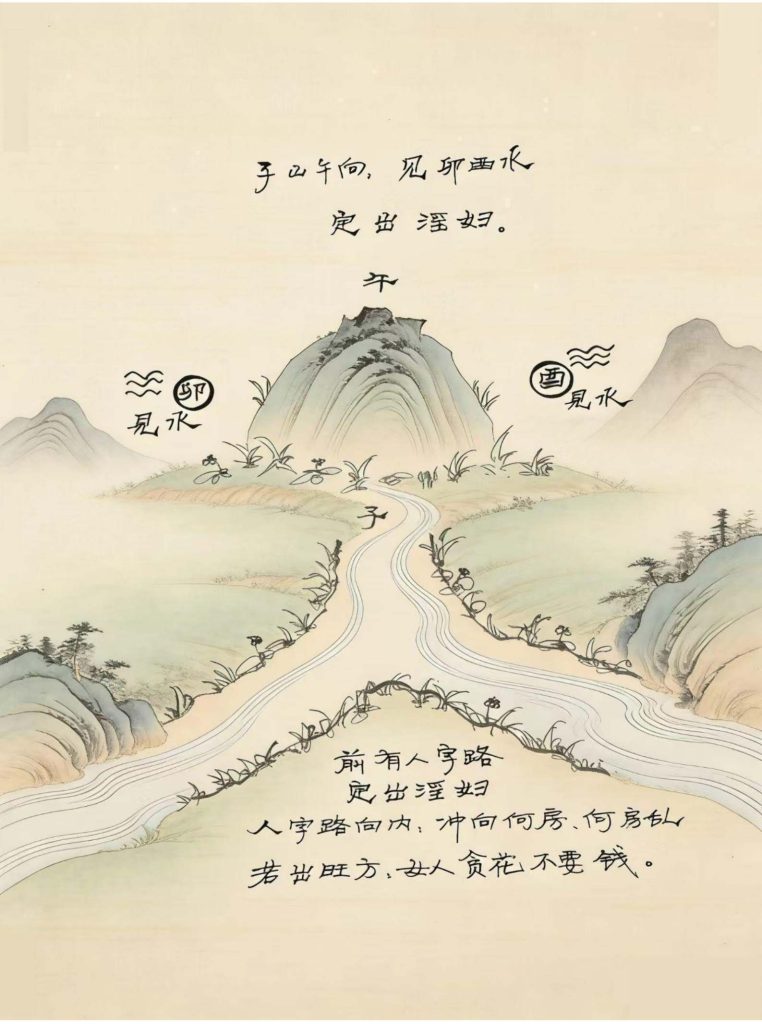 子山午向，见卯酉水
定出淫妇。
午
卯
见水
酉
见水
子
前有人字路
定出淫妇
人字路向内：冲向何房、何房乱
若出旺方，女人贪花不要钱。